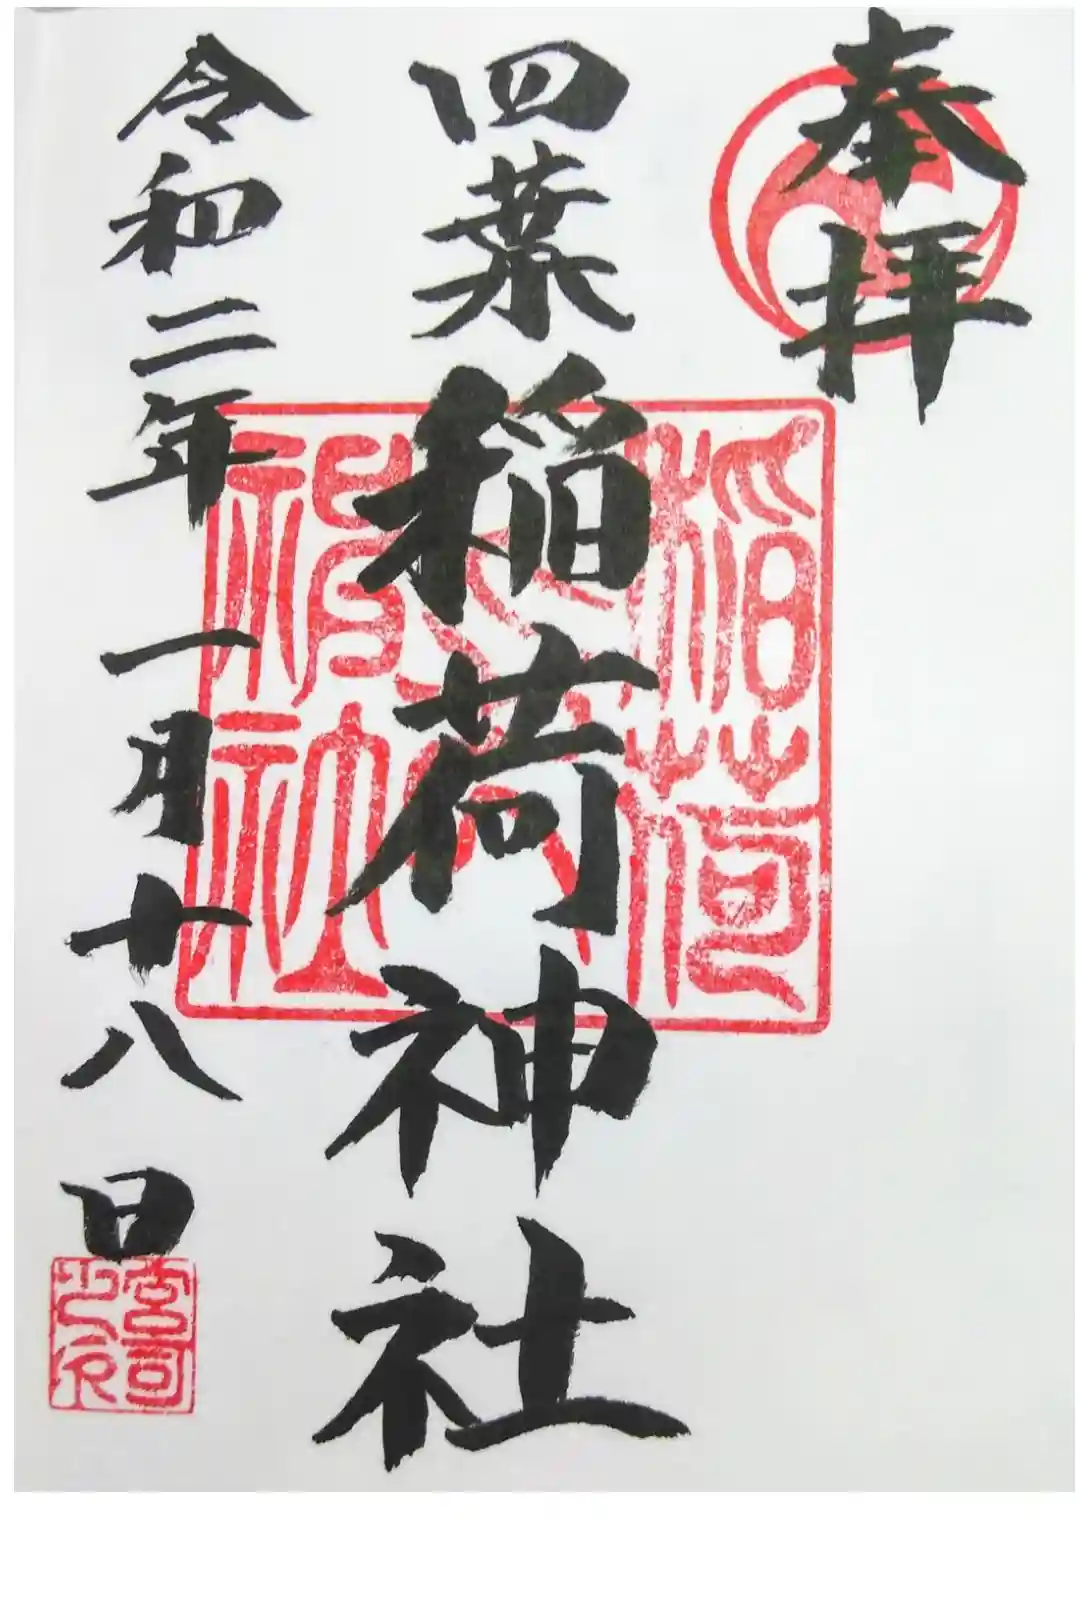 奉拝
四葉稲荷神社
令和二年一月廿八日
宮司之印